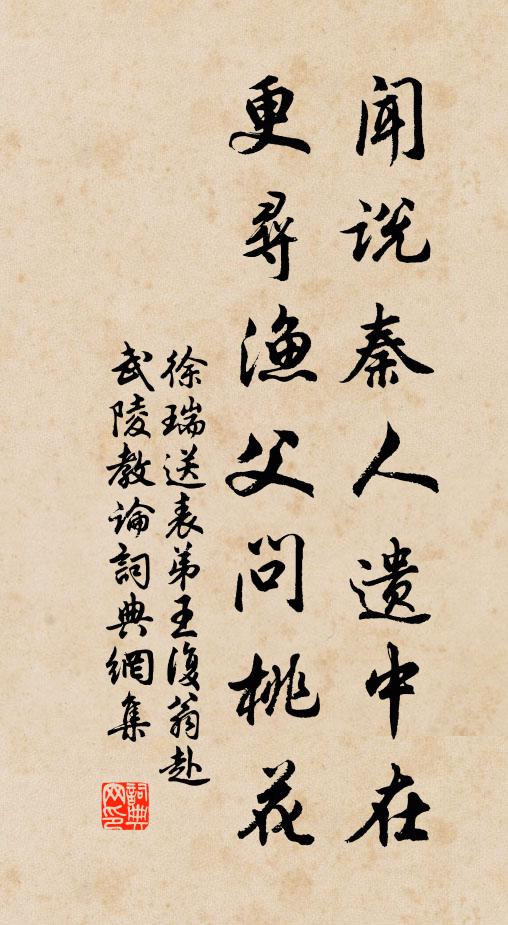 闻说秦人遗中在
更尋漁父问桃花
徐瑞送表弟王復翁赴
武陵教论詞典網集
詞典网印